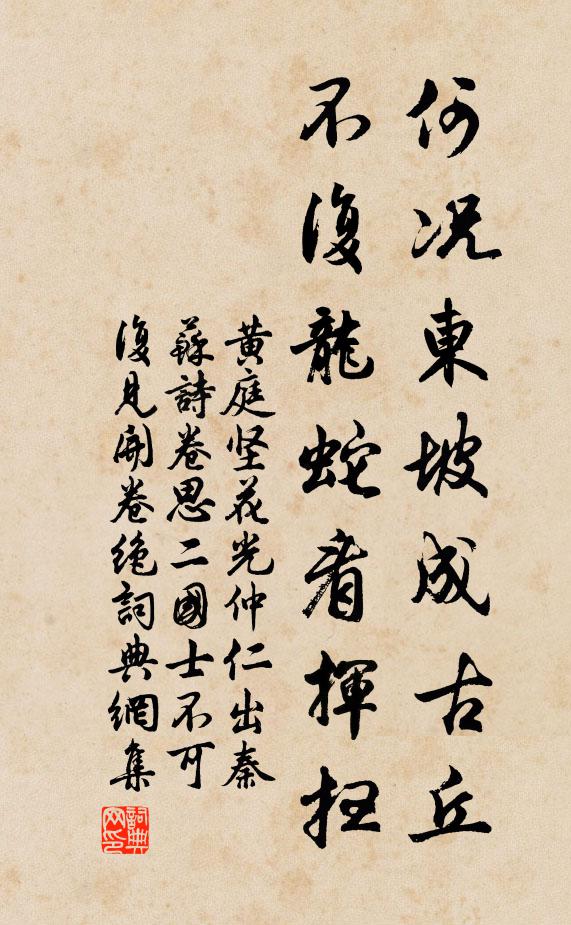 何况東坡成古丘
不復龍蛇看揮扫
黄庭坚花光仲仁出秦
蘇詩卷思二國士不可
復見開卷绝詞典網集
詞典
网印